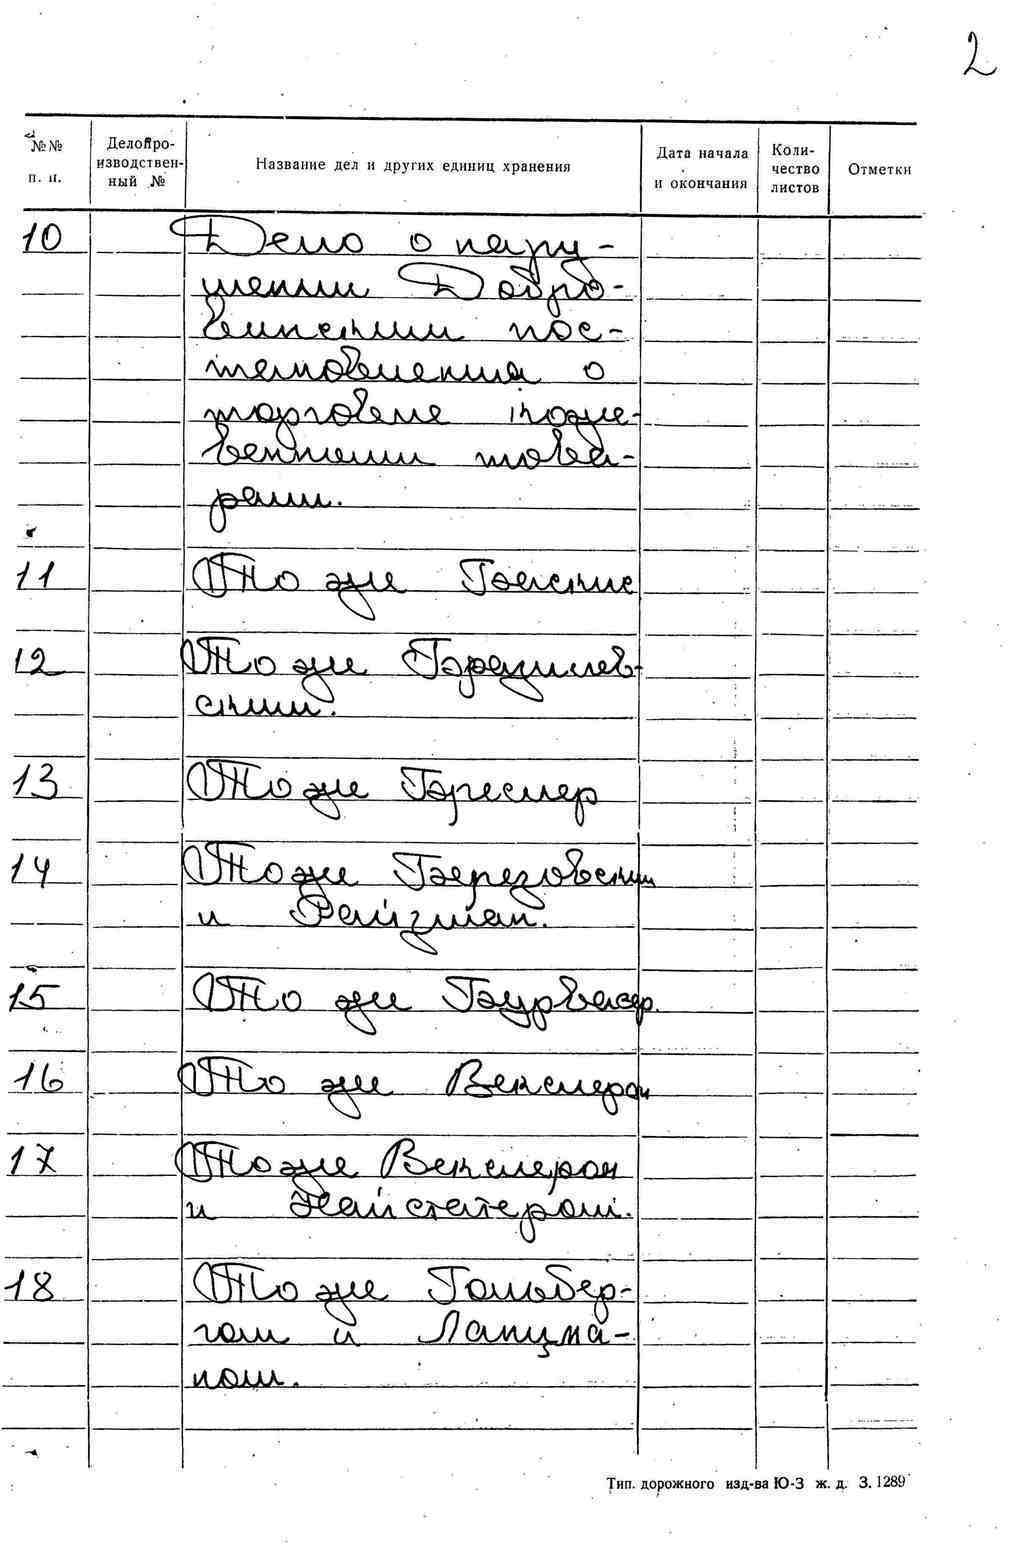 2
№№ п. п.
Делопро-
изводствен-
ный №
Название дел и других единиц хранения
Дата начала
и окончания
Коли-
чество
листов
Отметки
10 Дело о нару-
шении Добро-
винским пос-
тановления о
торговле коже-
венными това-
рами.
11 То же
12 То же
ским.
13 То же
14 То же Березовским
и Райзман.
15 То же
16 То же Векслером
17 То же Векслером
и Найстатером.
18 То же Гольбер-
гом и Ланцма-
ном.
Тип. дорожного изд-ва Ю-З ж. д. З. 1289